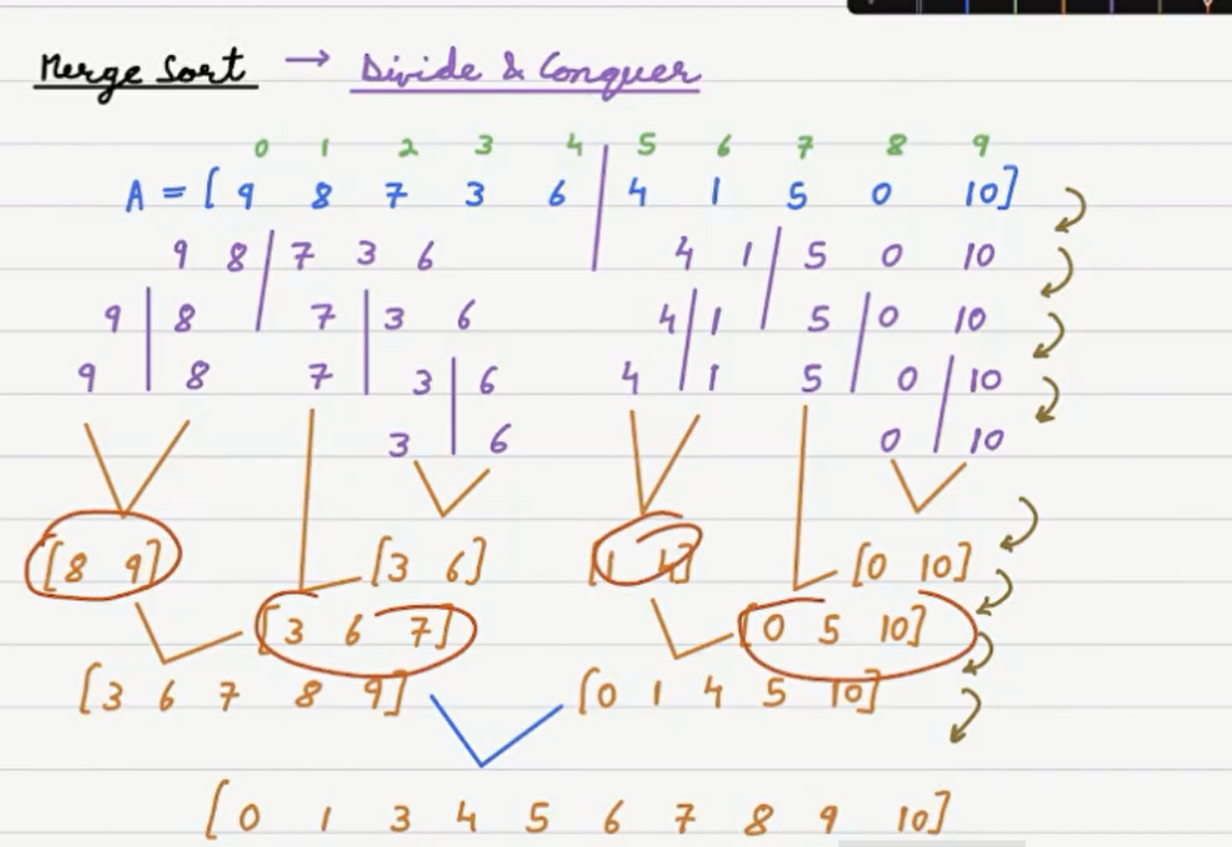 Merge Sort → Divide & Conquer
0 1 2 3 4 5 6 7 8 9
A = [ 9 8 7 3 6 | 4 1 5 0 10]
9 8 | 7 3 6 4 1 | 5 0 10
9 | 8 7 | 3 6 4 | 1 5 | 0 10
9 8 7 3 | 6 4 1 5 0 | 10
3 6 0 10
[8 9] [3 6] [1 4] [0 10]
[3 6 7] [0 5 10]
[3 6 7 8 9] [0 1 4 5 10]
[0 1 3 4 5 6 7 8 9 10]